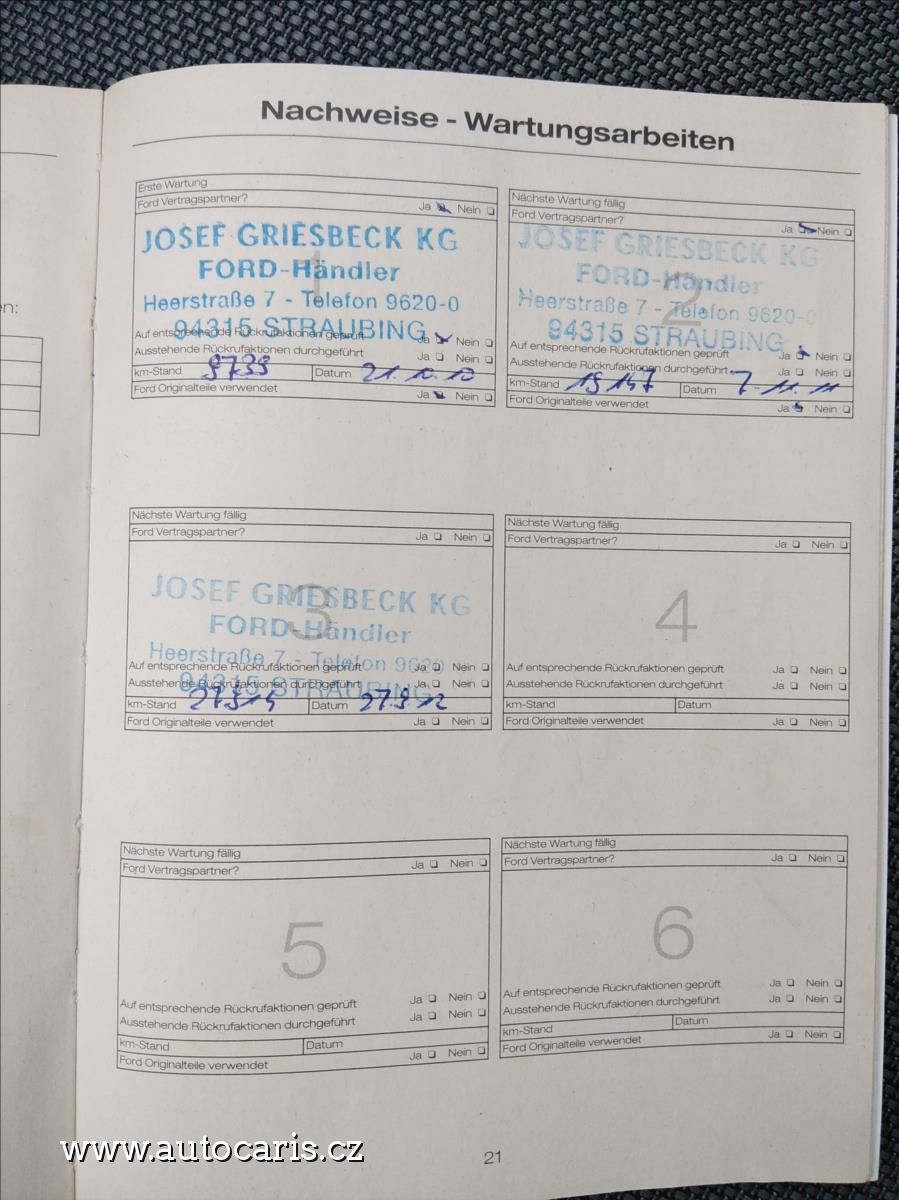 Nachweise - Wartungsarbeiten
Erste Wartung
Ford Vertragspartner? Ja Nein
1
JOSEF GRIESBECK KG
FORD-Händler
Heerstraße 7 - Telefon 9620-0
94315 STRAUBING
Auf entsprechende Rückrufaktionen geprüft Ja Nein
Ausstehende Rückrufaktionen durchgeführt Ja Nein
km-Stand 9739 Datum 21.10.10
Ford Originalteile verwendet Ja Nein
Nächste Wartung fällig
Ford Vertragspartner? Ja Nein
2
JOSEF GRIESBECK KG
FORD-Händler
Heerstraße 7 - Telefon 9620-0
94315 STRAUBING
Auf entsprechende Rückrufaktionen geprüft Ja Nein
Ausstehende Rückrufaktionen durchgeführt Ja Nein
km-Stand 19147 Datum 7-11.11
Ford Originalteile verwendet Ja Nein
Nächste Wartung fällig
Ford Vertragspartner? Ja Nein
3
JOSEF GRIESBECK KG
FORD-Händler
Heerstraße 7 - Telefon 9620
94315 STRAUBING
Auf entsprechende Rückrufaktionen geprüft Ja Nein
Ausstehende Rückrufaktionen durchgeführt Ja Nein
km-Stand Datum 27.9.12
Ford Originalteile verwendet Ja Nein
Nächste Wartung fällig
Ford Vertragspartner? Ja Nein
4
Auf entsprechende Rückrufaktionen geprüft Ja Nein
Ausstehende Rückrufaktionen durchgeführt Ja Nein
km-Stand Datum
Ford Originalteile verwendet Ja Nein
Nächste Wartung fällig
Ford Vertragspartner? Ja Nein
5
Auf entsprechende Rückrufaktionen geprüft Ja Nein
Ausstehende Rückrufaktionen durchgeführt Ja Nein
km-Stand Datum
Ford Originalteile verwendet Ja Nein
Nächste Wartung fällig
Ford Vertragspartner? Ja Nein
6
Auf entsprechende Rückrufaktionen geprüft Ja Nein
Ausstehende Rückrufaktionen durchgeführt Ja Nein
km-Stand Datum
Ford Originalteile verwendet Ja Nein
21
www.autocaris.cz